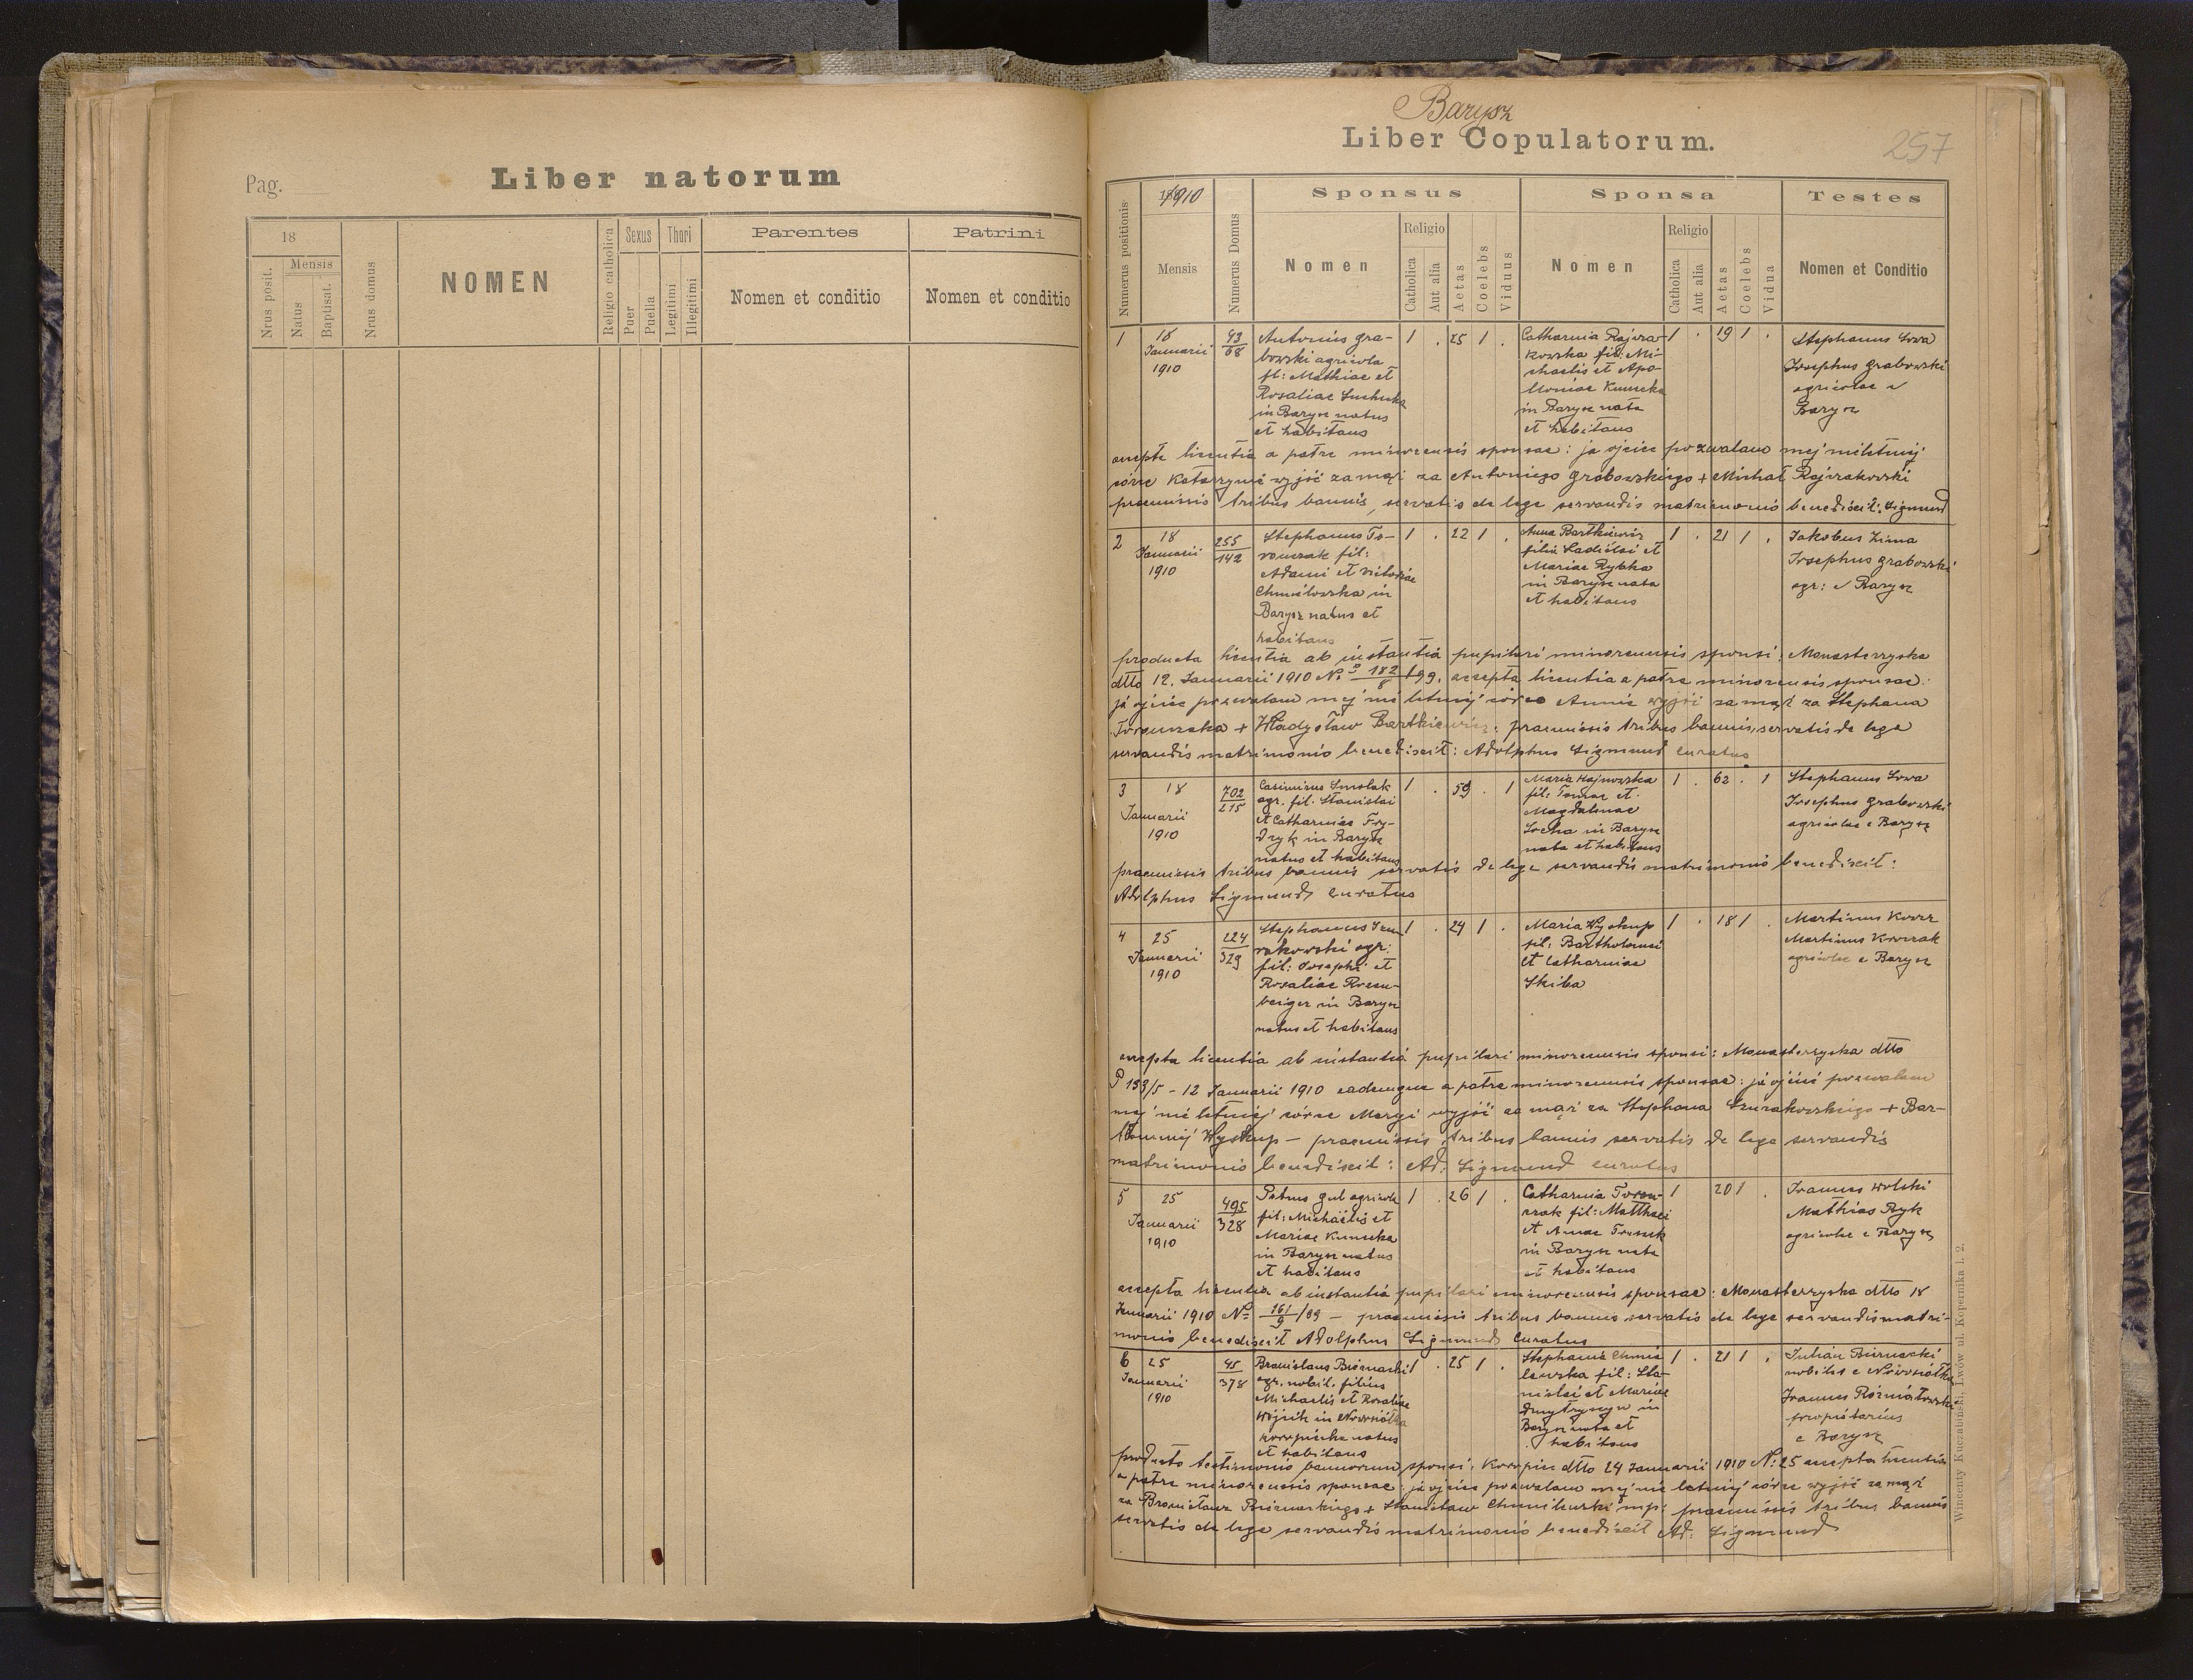 Pag.
Liber natorum
18
Mensis
Nrus posit.
Natus
Baptisat.
Nrus domus
NOMEN
Religio catholica
Sexus
Puer
Puella
Thori
Legitimi
Illegitimi
Parentes
Nomen et conditio
Patrini
Nomen et conditio
Barysz
Liber Copulatorum.
257
Numerus positionis
1910
Mensis
Numerus Domus
Sponsus
Nomen
Religio
Catholica
Aut alia
Aetas
Coelebs
Viduus
Sponsa
Nomen
Religio
Catholica
Aut alia
Aetas
Coelebs
Vidua
Testes
Nomen et Conditio
1
18
Januarii
1910
93
68
Antonius Gra-
bowski agricola
fil: Mathiae et
Rosaliae
in Barysz natus
et habitans
1 . 25 1 .
Catharina Rajza-
kowska fil: Mi-
chaelis et Apo-
loniae
in Barysz nata
et habitans
1 . 19 1 .
Stephanus Sowa
Josephus Grabowski
agricolae e
Barysz
accepta licentia a patre minorensis sponsae: ja ojciec pozwalam mej nieletniej
córce Katarzynie wyjść zamąż za Antoniego Grabowskiego + Michał Rajzakowski
praemissis tribus bannis, servatis de lege servandis matrimonio benedixit: Sigmund
2
18
Januarii
1910
255
142
Stephanus To-
ronczak fil:
Adami et Victoriae
Chmielowska in
Barysz natus et
habitans
1 . 22 1 .
Anna Bartkiewicz
filia Ladislai et
Mariae Rybka
in Barysz nata
et habitans
1 . 21 1 .
Jakobus Zima
Josephus Grabowski
agr: e Barysz
producta licentia ab instantia pupilari minorensis sponsi: Monasterzyska
dtto 12. Januarii 1910 No 182/8 /99. accepta licentia a patre minorensis sponsae:
ja ojciec pozwalam mej nieletniej córce Annie wyjść zamąż za Stephana
Toronczaka + Władysław Bartkiewicz: praemissis tribus bannis, servatis de lege
servandis matrimonio benedixit: Adolphus Sigmund curatus
3
18
Januarii
1910
702
215
Casimirus Smolak
agr. fil. Stanislai
et Catharinae Fry-
dryk in Barysz
natus et habitans
1 . 59 . 1
Maria Hajnowska
fil: Tomae et
Magdalenae
Socha in Barysz
nata et habitans
1 . 62 . 1
Stephanus Sowa
Josephus Grabowski
agricolae e Barysz
praemissis tribus bannis servatis de lege servandis matrimonio benedixit:
Adolphus Sigmund curatus
4
25
Januarii
1910
224
329
Stephanus
agr:
fil: Josephi et
Rosaliae Rosen-
berger in Barysz
natus et habitans
1 . 24 1 .
Maria Wyskup
fil: Bartholomei
et Catharinae
Skiba
1 . 18 1 .
Martinus
Martinus
agricolae e Barysz
accepta licentia ab instantia pupilari minorensis sponsi: Monasterzyska dtto
P 133/5 - 12 Januarii 1910 eademque a patre minorensis sponsae: ja ojciec pozwalam
mej nieletniej córce Maryi wyjść za mąż za Stephana Szurakowskiego + Bar-
tłomiej Wyskup - praemissis tribus bannis servatis de lege servandis
matrimonio benedixit: Ad: Sigmund curatus
5
25
Januarii
1910
495
328
Petrus Gul agricola
fil: Michaelis et
Mariae
in Barysz natus
et habitans
1 . 26 1 .
Catharina Toron-
czak fil: Matthaei
et Annae
in Barysz nata
et habitans
1 20 1 .
Joannes Wolski
Mathias Byk
agricolae e Barysz
accepta licentia ab instantia pupilari minorensis sponsae: Monasterzyska dtto 18
Januarii 1910 No 161/9 /99 - praemissis tribus bannis servatis de lege servandis matri-
monio benedixit Adolphus Sigmund Curatus
6
25
Januarii
1910
45
378
Bronislaus Biernacki
agr. nobil. filius
Michaelis et Rosaliae
Wójcik in Nowosiółka
koropiecka natus
et habitans
1 . 25 1 .
Stephania Chmie
lewska fil: Sta-
nislai et Mariae
Dmytryszyn in
Barysz nata et
habitans
1 . 21 1 .
Julian Biernacki
nobilis e Nowosiółka
Joannes
propietarius
e Barysz
producto testimonio bannorum sponsi, Koropiec dtto 24 Januarii 1910 N: 25 accepta licentia
a patre minorensis sponsae: ja ojciec pozwalam mej nieletniej córce wyjść za mąż
za Bronisława Biernackiego + Stanisław Chmielewski mp: praemissis tribus bannis
servatis de lege servandis matrimonio benedixit Ad: Sigmund
Wincenty Kuczabiński, Lwów ul. Kopernika l. 2.